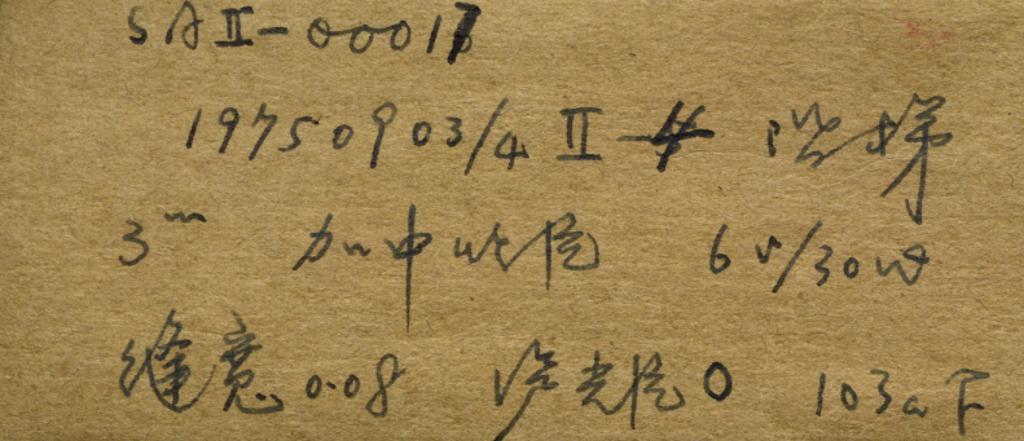 SAⅡ-00017
19750903/4 Ⅱ-4 阶梯
3m 加中 6V/30W
缝宽 0.08 光 0 103aF